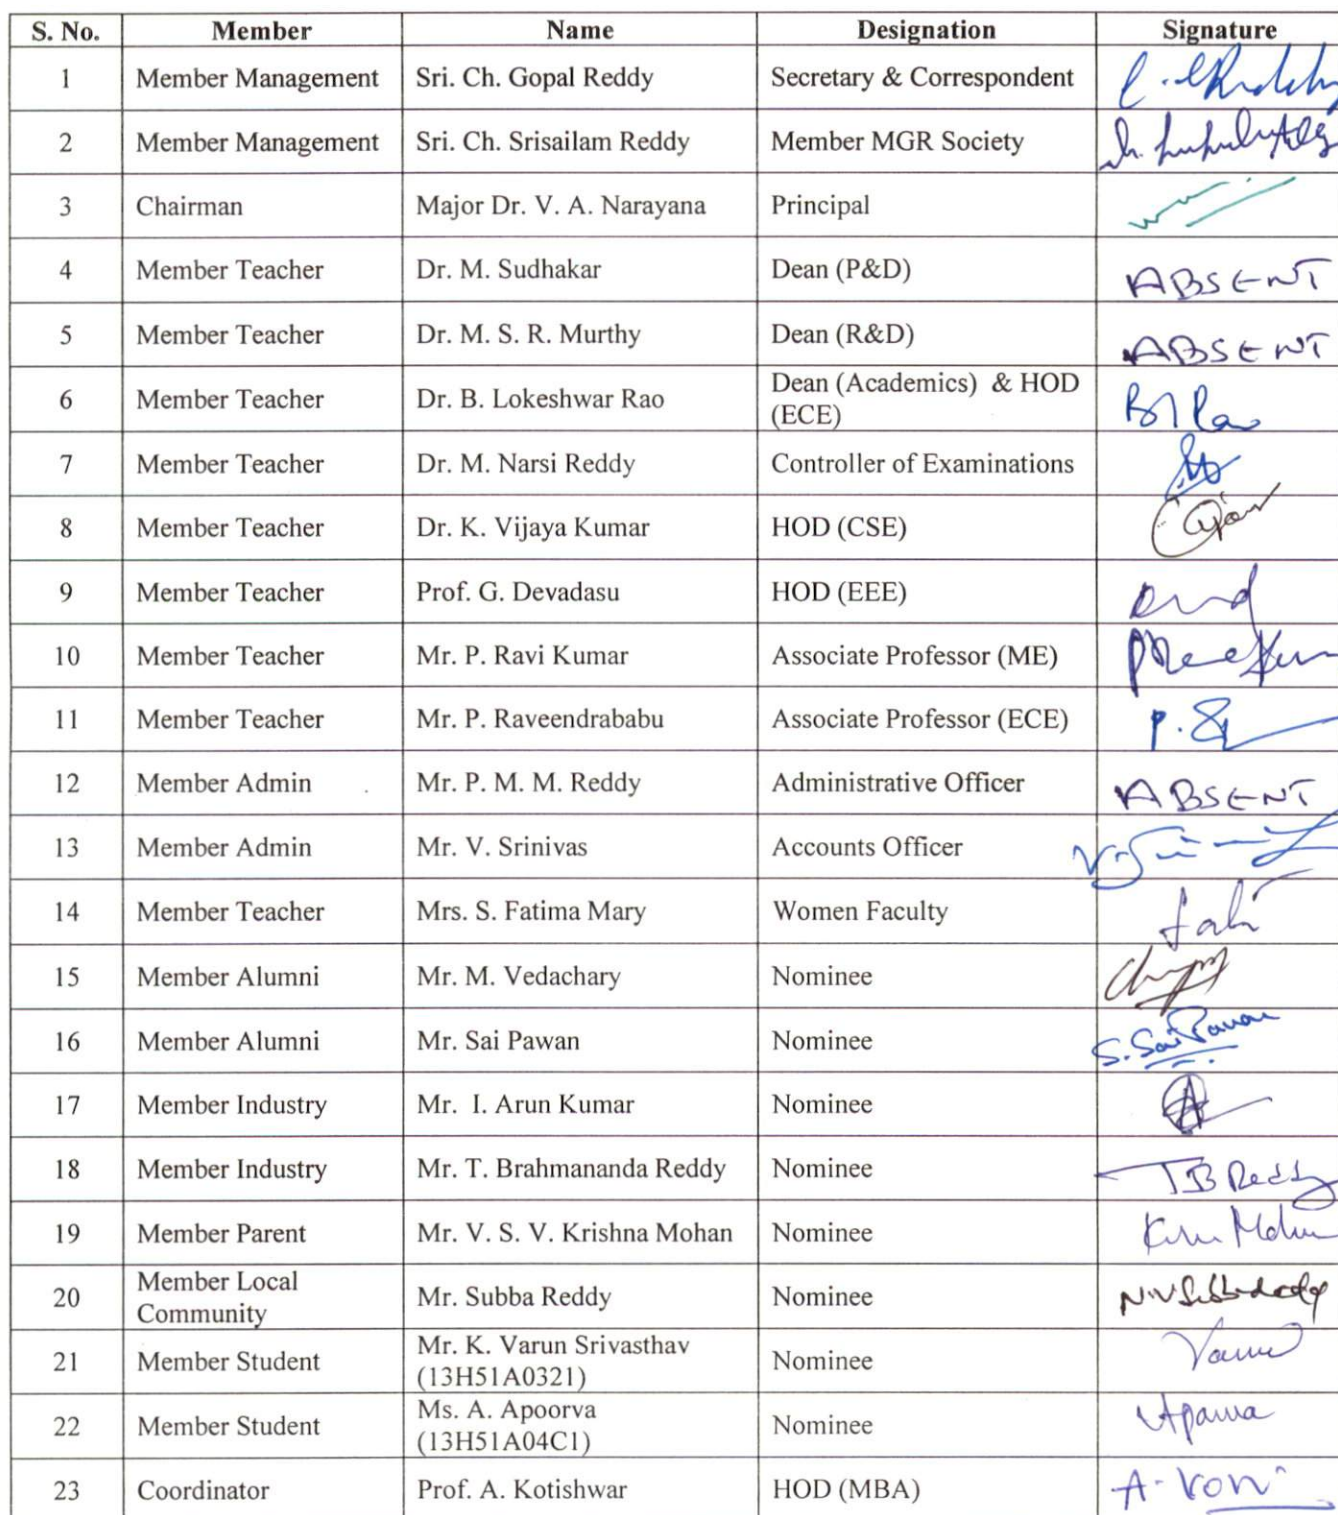 S. No. Member Name Designation Signature
1 Member Management Sri. Ch. Gopal Reddy Secretary & Correspondent
2 Member Management Sri. Ch. Srisailam Reddy Member MGR Society
3 Chairman Major Dr. V. A. Narayana Principal
4 Member Teacher Dr. M. Sudhakar Dean (P&D) ABSENT
5 Member Teacher Dr. M. S. R. Murthy Dean (R&D) ABSENT
6 Member Teacher Dr. B. Lokeshwar Rao Dean (Academics) & HOD
(ECE)
7 Member Teacher Dr. M. Narsi Reddy Controller of Examinations
8 Member Teacher Dr. K. Vijaya Kumar HOD (CSE)
9 Member Teacher Prof. G. Devadasu HOD (EEE)
10 Member Teacher Mr. P. Ravi Kumar Associate Professor (ME)
11 Member Teacher Mr. P. Raveendrababu Associate Professor (ECE)
12 Member Admin Mr. P. M. M. Reddy Administrative Officer ABSENT
13 Member Admin Mr. V. Srinivas Accounts Officer
14 Member Teacher Mrs. S. Fatima Mary Women Faculty
15 Member Alumni Mr. M. Vedachary Nominee
16 Member Alumni Mr. Sai Pawan Nominee S. Sai Pawan
17 Member Industry Mr. I. Arun Kumar Nominee
18 Member Industry Mr. T. Brahmananda Reddy Nominee TB Reddy
19 Member Parent Mr. V. S. V. Krishna Mohan Nominee
20 Member Local
Community Mr. Subba Reddy Nominee
21 Member Student Mr. K. Varun Srivasthav
(13H51A0321) Nominee
22 Member Student Ms. A. Apoorva
(13H51A04C1) Nominee
23 Coordinator Prof. A. Kotishwar HOD (MBA)